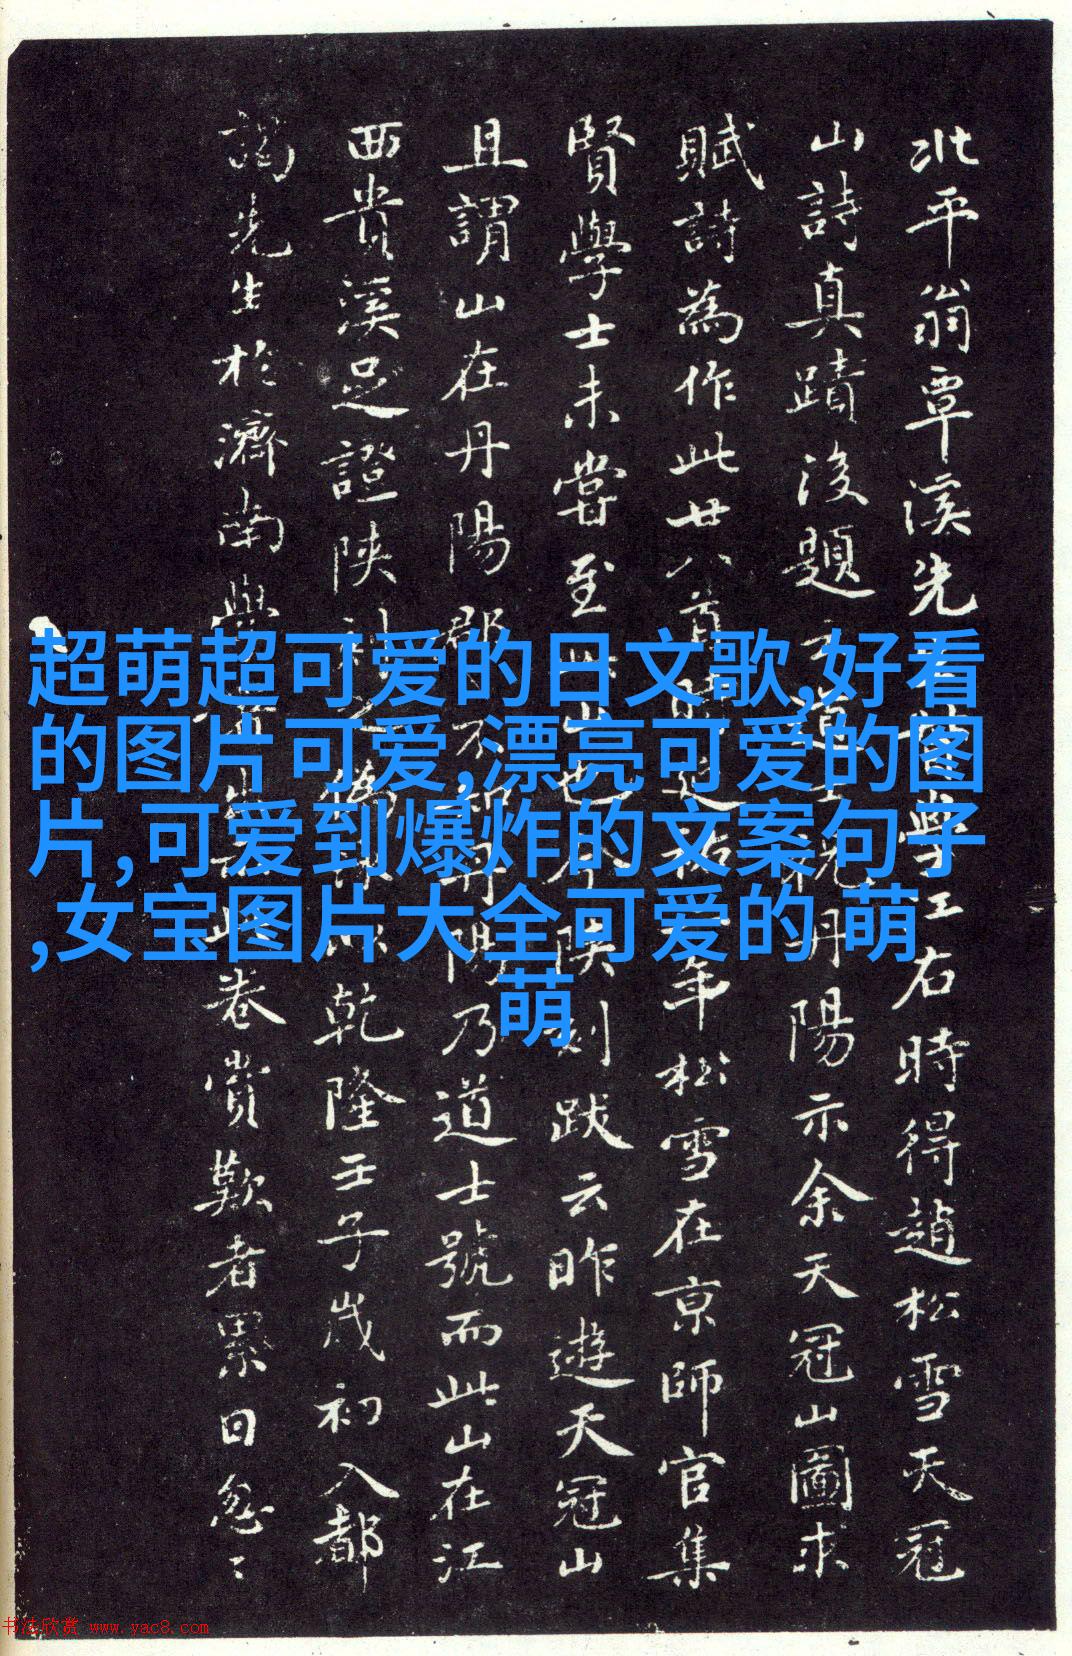 超萌超可爱的日文歌,好看
的图片可爱,漂亮可爱的图
片,可爱到爆炸的文案句子
,女宝图片大全可爱的 萌
萌
北平翁覃溪先學江右時得趙松雪天冠
山詩真蹟後題道士祝丹陽示余天冠山圖求
賦詩為作此廿八首時延祐年松雪在京師官集
賢學士未嘗至此山也今陝刻跋云昨遊天冠山
且謂山在丹陽郡不知丹陽乃道士號而此山在江
西貴溪足證陝刻之偽乾隆壬子歲初入都
謁先生於濟南學此卷賞歎者累日忽〻
书法欣赏 www.yac8.com